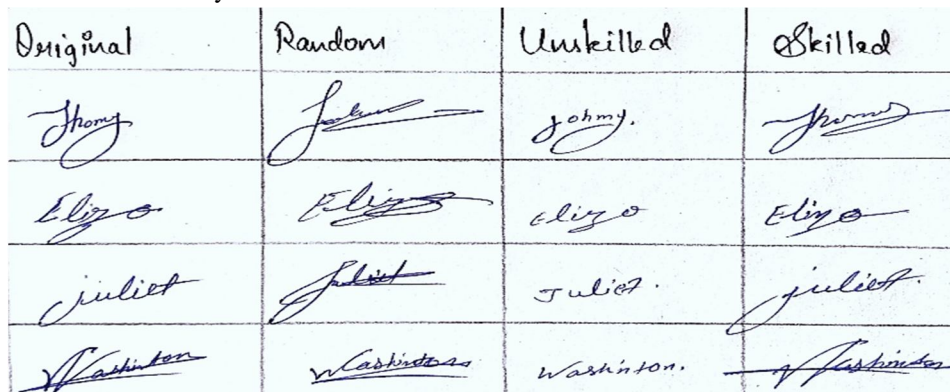 Original Random Unskilled Skilled
Jhomy Johmy. Jhomy
Elizo Elizo Elizo Elizo
juliet Juliet Juliet. juliet.
Washinton Washinton Washinton. Washinton